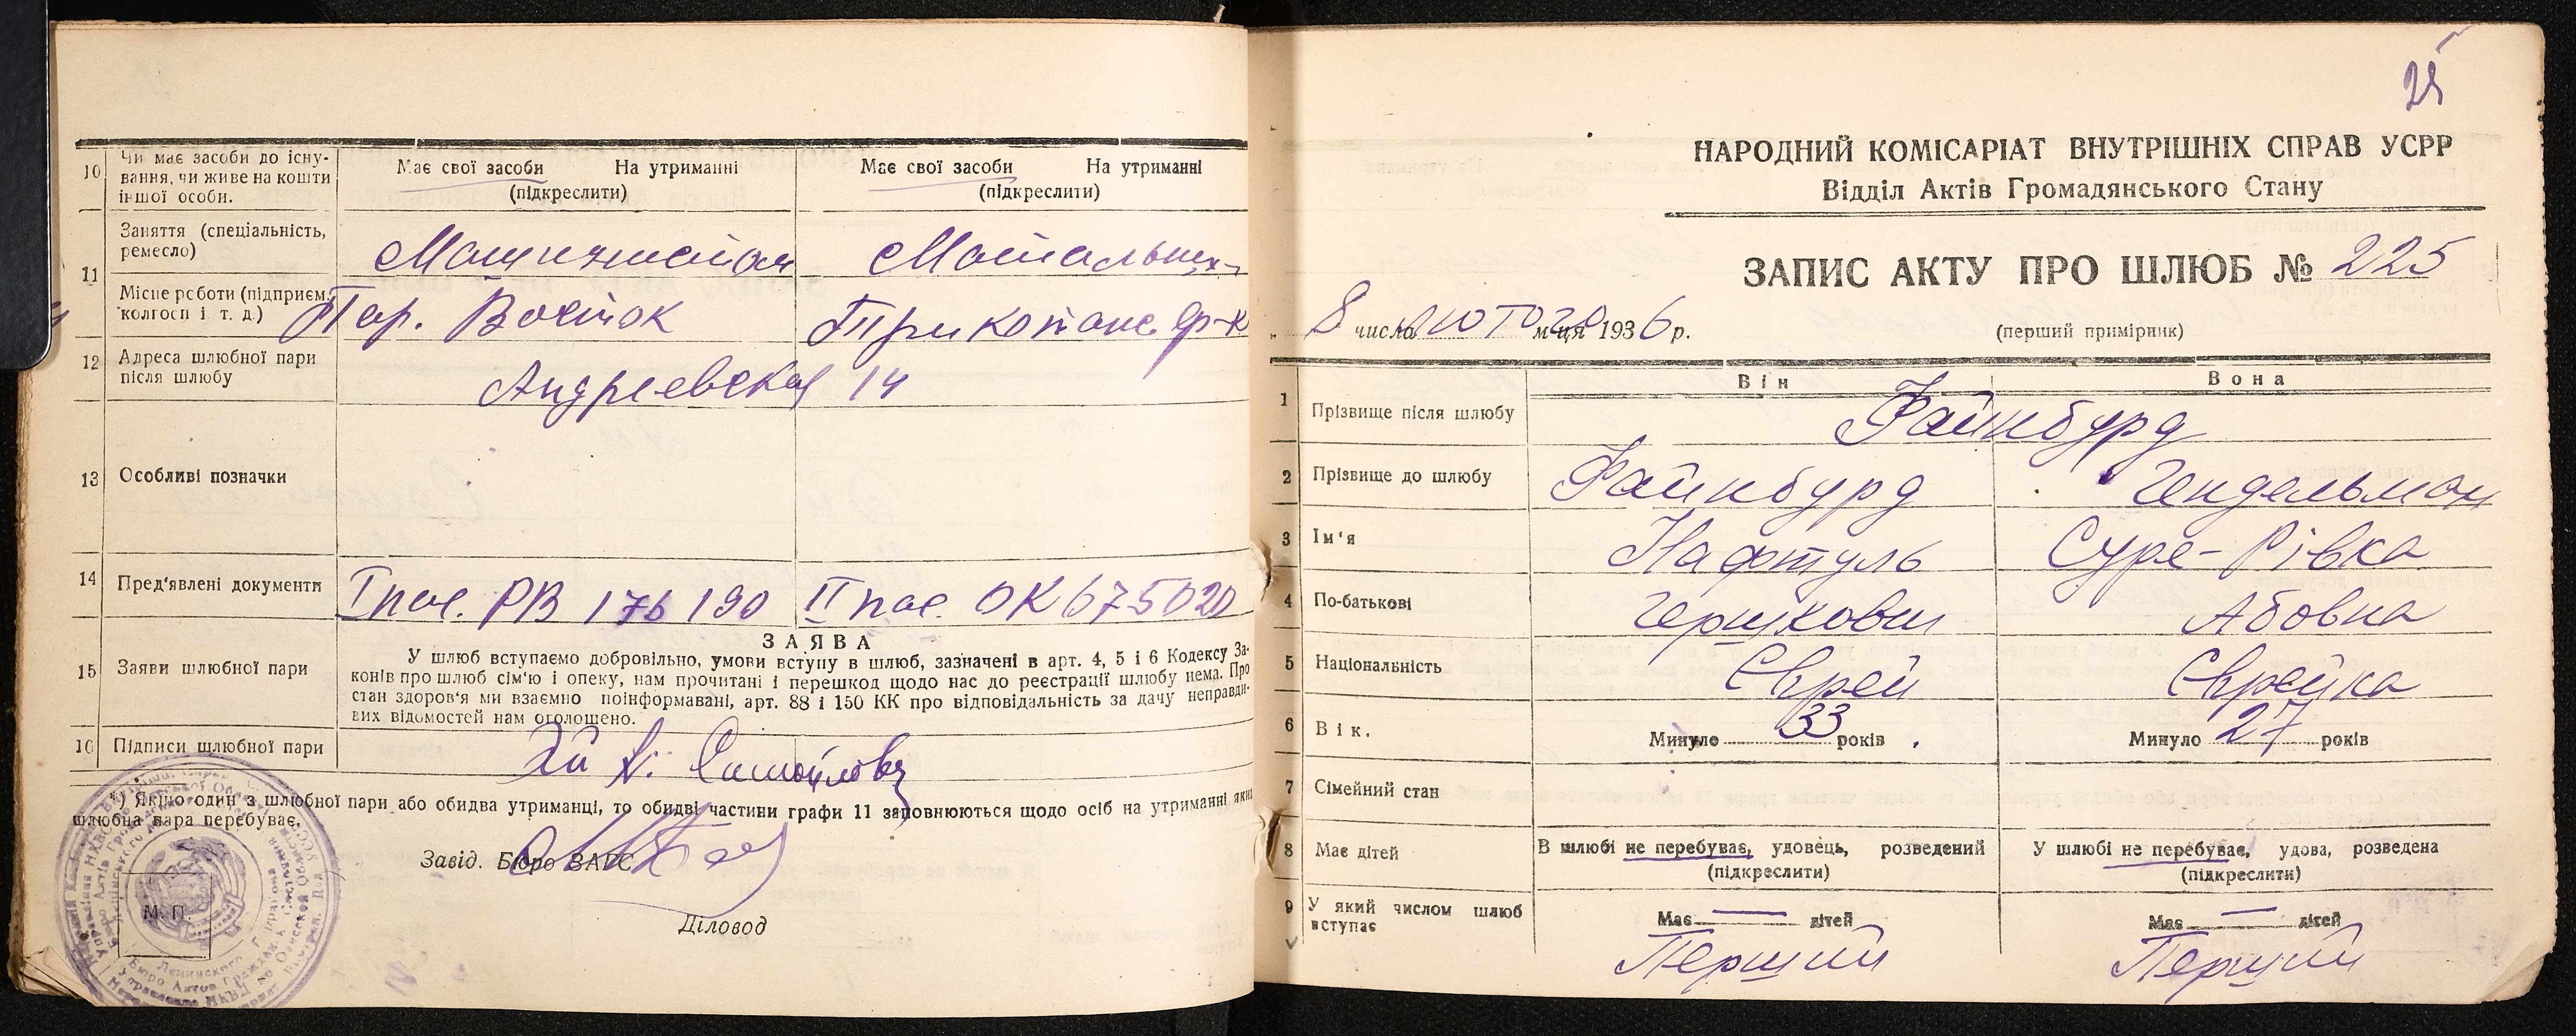 10 Чи має засоби до існу-
вання, чи живе на кошти
іншої особи.
Має свої засоби На утриманні
(підкреслити)
Має свої засоби На утриманні
(підкреслити)
11 Заняття (спеціальність,
ремесло)
Мотальниц-
Місце роботи (підприєм.
колгосп і т. д.)
Пар. Восток
Трикотаж. ф-к
12 Адреса шлюбної пари
після шлюбу
Андреевская 14
13 Особливі позначки
14 Пред'явлені документи
I пас. РВ 176190
II пас. ОК 675020
15 Заяви шлюбної пари
ЗАЯВА
У шлюб вступаємо добровільно, умови вступу в шлюб, зазначені в арт. 4, 5 і 6 Кодексу За-
конів про шлюб сім'ю і опеку, нам прочитані і перешкод щодо нас до реєстрації шлюбу нема. Про
стан здоров'я ми взаємно поінформавані, арт. 88 і 150 КК про відповідальність за дачу неправди-
вих відомостей нам оголошено.
16 Підписи шлюбної пари
*) Якщо один з шлюбної пари або обидва утриманці, то обидві частини графи 11 заповнюються щодо осіб на утриманні яких
шлюбна пара перебуває.
Завід. Бюро ЗАГС
М. П.
Діловод
25
НАРОДНИЙ КОМІСАРІАТ ВНУТРІШНІХ СПРАВ УСРР
Відділ Актів Громадянського Стану
ЗАПИС АКТУ ПРО ШЛЮБ № 225
„ 8 числа лютого м-ця 1936 р.
(перший примірник)
Він Вона
1 Прізвище після шлюбу Файнбурд
2 Прізвище до шлюбу Файнбурд Гендельман
3 Ім'я Нафтуль Суре-Рівка
4 По-батькові Гершкович Абовна
5 Національність Єврей Єврейка
6 Вік. Минуло 33 років Минуло 27 років
7 Сімейний стан
8 Має дітей
В шлюбі не перебуває, удовець, розведений
(підкреслити)
У шлюбі не перебуває, удова, розведена
(підкреслити)
9 У який числом шлюб
вступає
Має — дітей
Має — дітей
Перший Перший